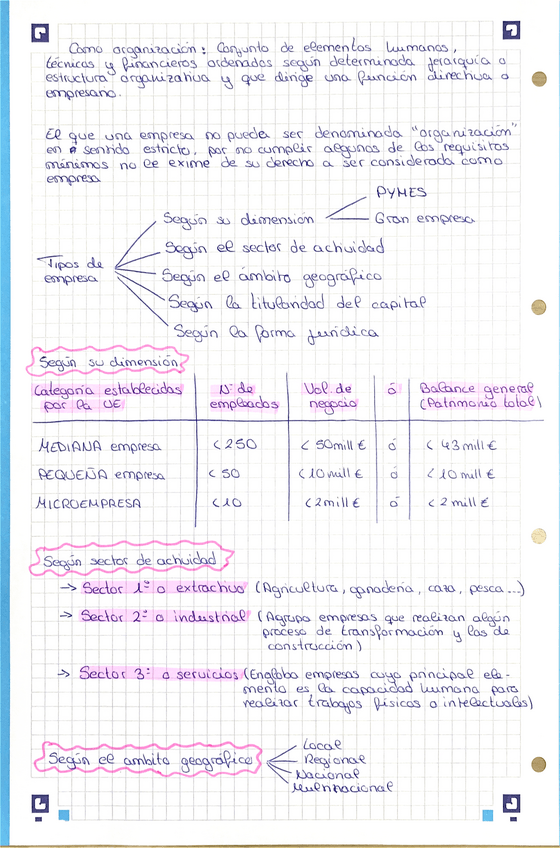 Como organización: Conjunto de elementos humanos,
técnicos y financieros ordenados según determinada jerarquía o
estructura organizativa y que dirige una función directiva o
empresario.
El que una empresa no pueda ser denominada "organización"
en sentido estricto, por no cumplir algunos de los requisitos
mínimos no le exime de su derecho a ser considerada como
empresa
Tipos de
empresa
Según su dimensión
PYMES
Gran empresa
Según el sector de actividad
Según el ámbito geográfico
Según la titularidad del capital
Según la forma jurídica
Según su dimensión
Categoría establecidas por la UE | Nº de empleados | Vol. de negocio | ó | Balance general (Patrimonio total)
MEDIANA empresa | < 250 | < 50 mill € | ó | < 43 mill €
PEQUEÑA empresa | < 50 | < 10 mill € | ó | < 10 mill €
MICROEMPRESA | < 10 | < 2 mill € | ó | < 2 mill €
Según sector de actividad
→ Sector 1º o extractivo (Agricultura, ganadería, caza, pesca...)
→ Sector 2º o industrial (Agrupa empresas que realizan algún
proceso de transformación y las de
construcción)
→ Sector 3º o servicios (Engloba empresas cuyo principal ele-
mento es la capacidad humana para
realizar trabajos físicos o intelectuales)
Según el ambito geográfico
Local
Regional
Nacional
Multinacional